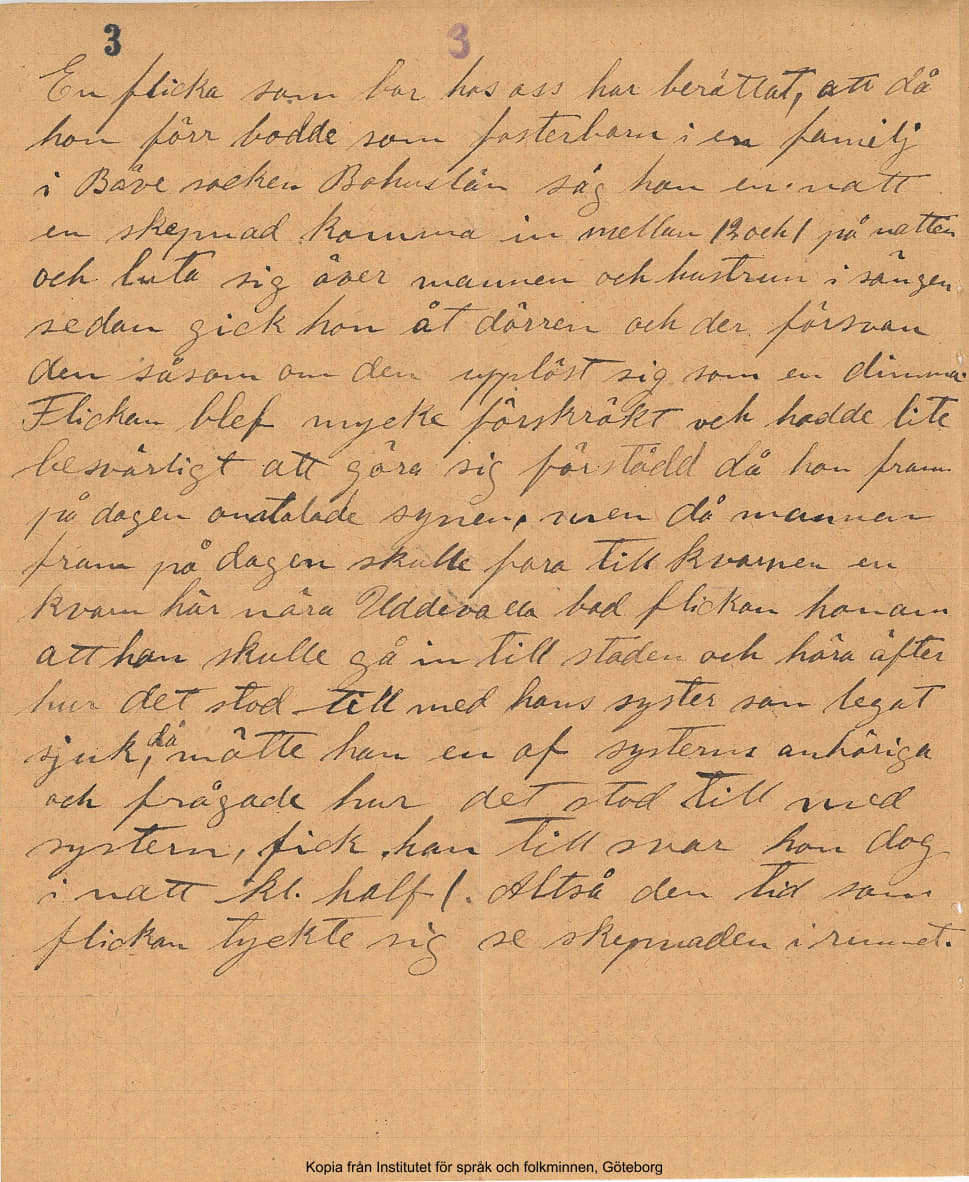 3 3
En flicka som bor hos oss har berättat, att då
hon förr bodde som fosterbarn i en familj
i Bäve socken Bohuslän såg hon en natt
en skepnad komma in mellan 12 och 1 på natten
och luta sig över mannen och hustrun i sängen
sedan gick hon åt dörren och der försvan
den såsom om den upplöst sig som en dimma.
Flickan blef mycke förskräkt och hadde lite
besvärligt att göra sig förstådd då hon fram
på dagen omtalade synen, men då mannen
fram på dagen skulle fara till kvarnen en
kvarn här nära Uddevalla bad flickan honom
att han skulle gå in till staden och höra äfter
hur det stod till med hans syster som legat
sjuk, då mötte han en af systerns anhöriga
och frågade hur det stod till med
systern, fick han till svar hon dog
i natt kl. half 1. Altså den tid som
flickan tyckte sig se skepnaden i rummet.
Kopia från Institutet för språk och folkminnen, Göteborg